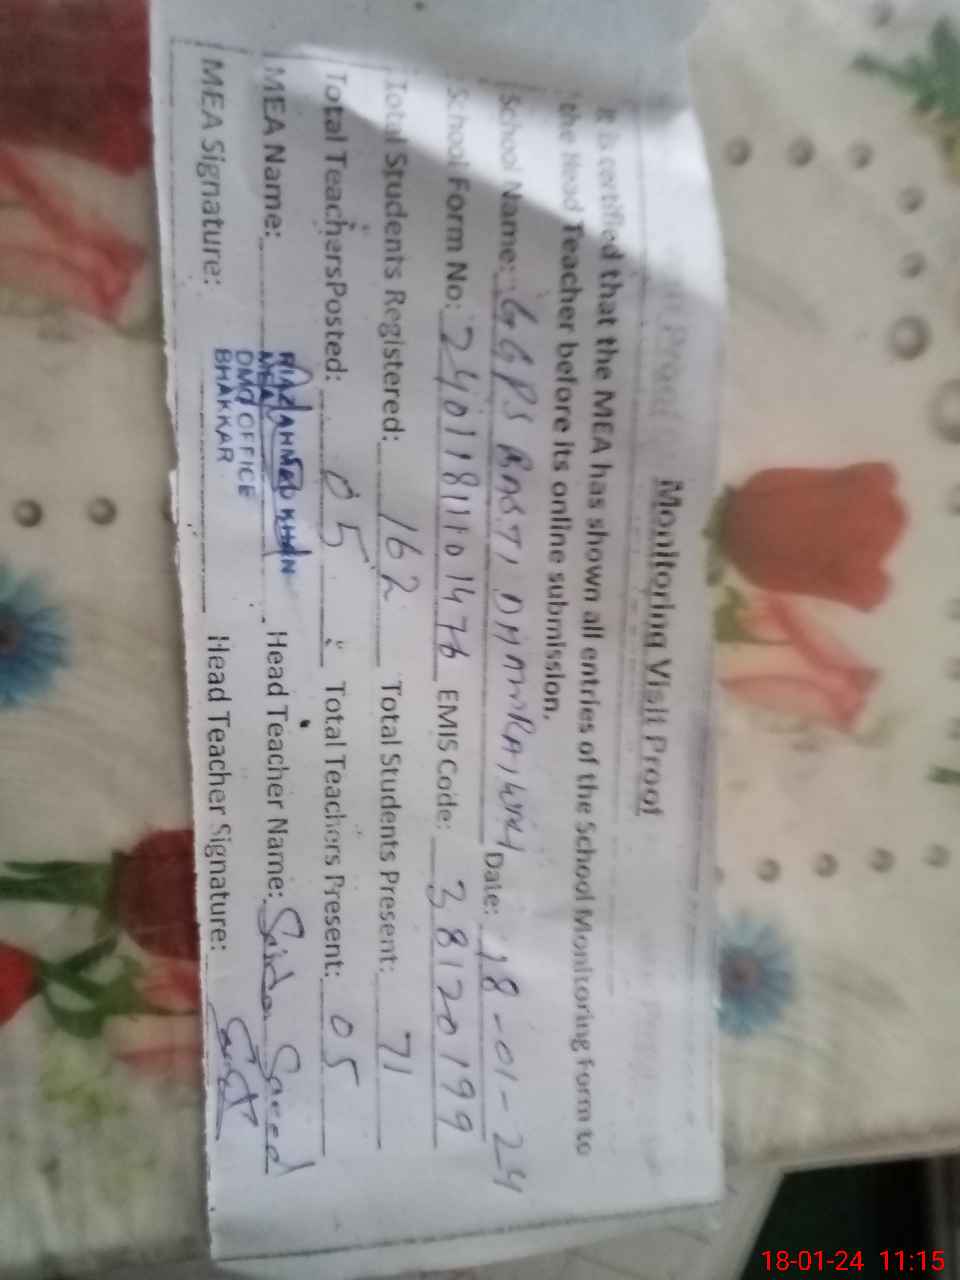 Monitoring Visit Proof
It is certified that the MEA has shown all entries of the School Monitoring Form to
the Head Teacher before its online submission.
School Name: GGPS BASTI DHAWRAIWAH Date: 18-01-24
School Form No: 2401181101476 EMIS Code: 38120199
Total Students Registered: 162 Total Students Present: 71
Total TeachersPosted: 05 Total Teachers Present: 05
MEA Name: RIAZ AHMAD KHAN Head Teacher Name: Saeed
MEA
DMO OFFICE
BHAKKAR
MEA Signature: Head Teacher Signature:
18-01-24 11:15